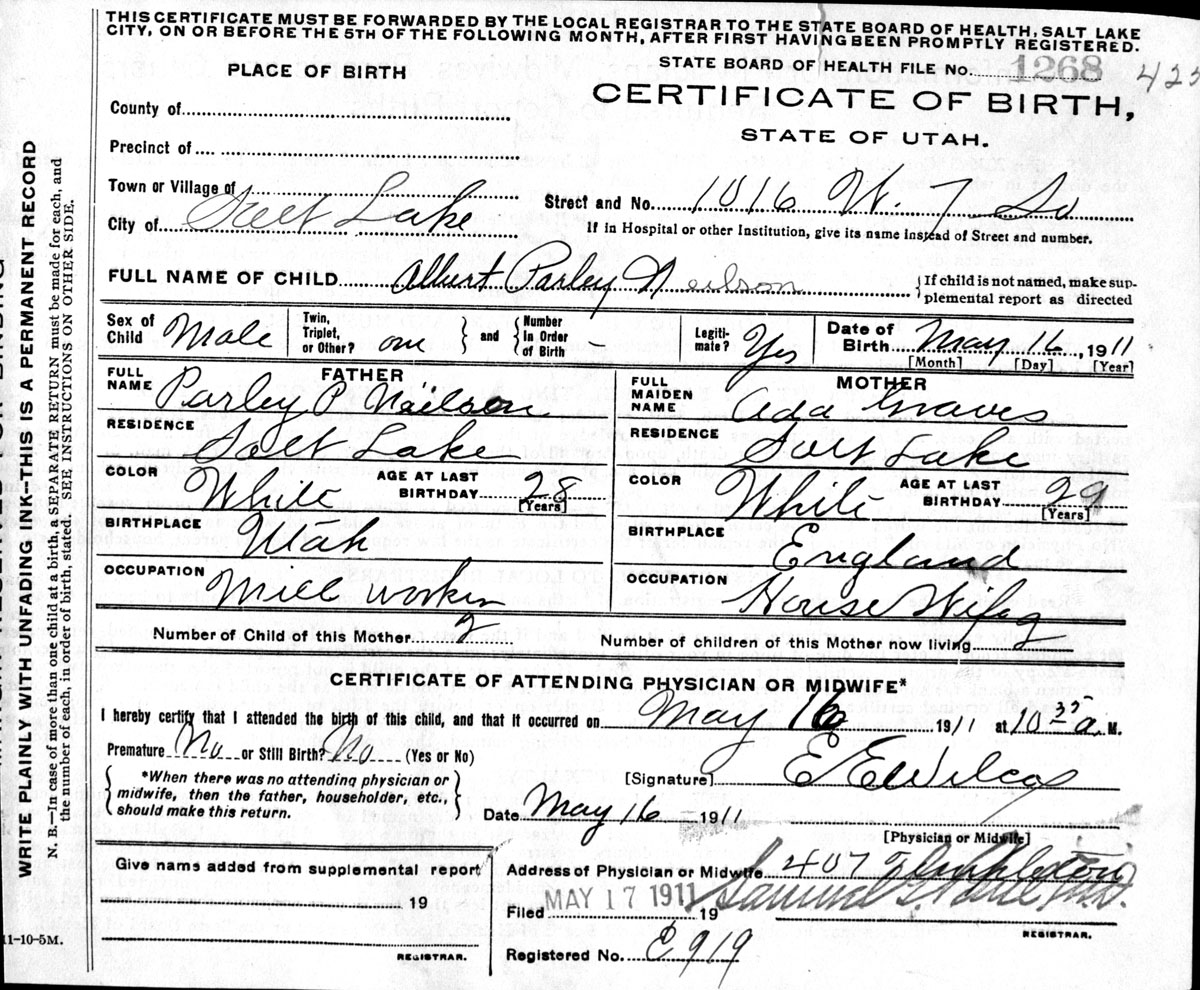 THIS CERTIFICATE MUST BE FORWARDED BY THE LOCAL REGISTRAR TO THE STATE BOARD OF HEALTH, SALT LAKE
CITY, ON OR BEFORE THE 5TH OF THE FOLLOWING MONTH, AFTER FIRST HAVING BEEN PROMPTLY REGISTERED.
PLACE OF BIRTH
STATE BOARD OF HEALTH FILE No. 1268 423
CERTIFICATE OF BIRTH,
STATE OF UTAH.
County of
Precinct of
Town or Village of
City of Salt Lake
Street and No. 1016 W. 7 So
If in Hospital or other Institution, give its name instead of Street and number.
FULL NAME OF CHILD Albert Parley Neilson
If child is not named, make sup-
plemental report as directed
Sex of Child Male
Twin, Triplet, or Other? one
and Number In Order of Birth –
Legiti-mate? Yes
Date of Birth May 16, 1911
[Month] [Day] [Year]
FATHER
FULL NAME Parley P Neilson
RESIDENCE Salt Lake
COLOR White AGE AT LAST BIRTHDAY 28
[Years]
BIRTHPLACE Utah
OCCUPATION Mill worker
MOTHER
FULL MAIDEN NAME Ada Graves
RESIDENCE Salt Lake
COLOR White AGE AT LAST BIRTHDAY 29
[Years]
BIRTHPLACE England
OCCUPATION House Wife
Number of Child of this Mother 2
Number of children of this Mother now living 2
CERTIFICATE OF ATTENDING PHYSICIAN OR MIDWIFE*
I hereby certify that I attended the birth of this child, and that it occurred on May 16 1911 at 10 a. M.
Premature No or Still Birth? No (Yes or No)
*When there was no attending physician or
midwife, then the father, householder, etc.,
should make this return.
[Signature] E E Wilcox
Date May 16 1911
[Physician or Midwife]
Give name added from supplemental report
19
REGISTRAR.
Address of Physician or Midwife 407 Templeton
Filed MAY 17 1911 19 Samuel G. Paul M.D.
REGISTRAR.
Registered No. E919
WRITE PLAINLY WITH UNFADING INK—THIS IS A PERMANENT RECORD
N. B.—In case of more than one child at a birth, a SEPARATE RETURN must be made for each, and
the number of each, in order of birth, stated. SEE INSTRUCTIONS ON OTHER SIDE.
11-10-5M.